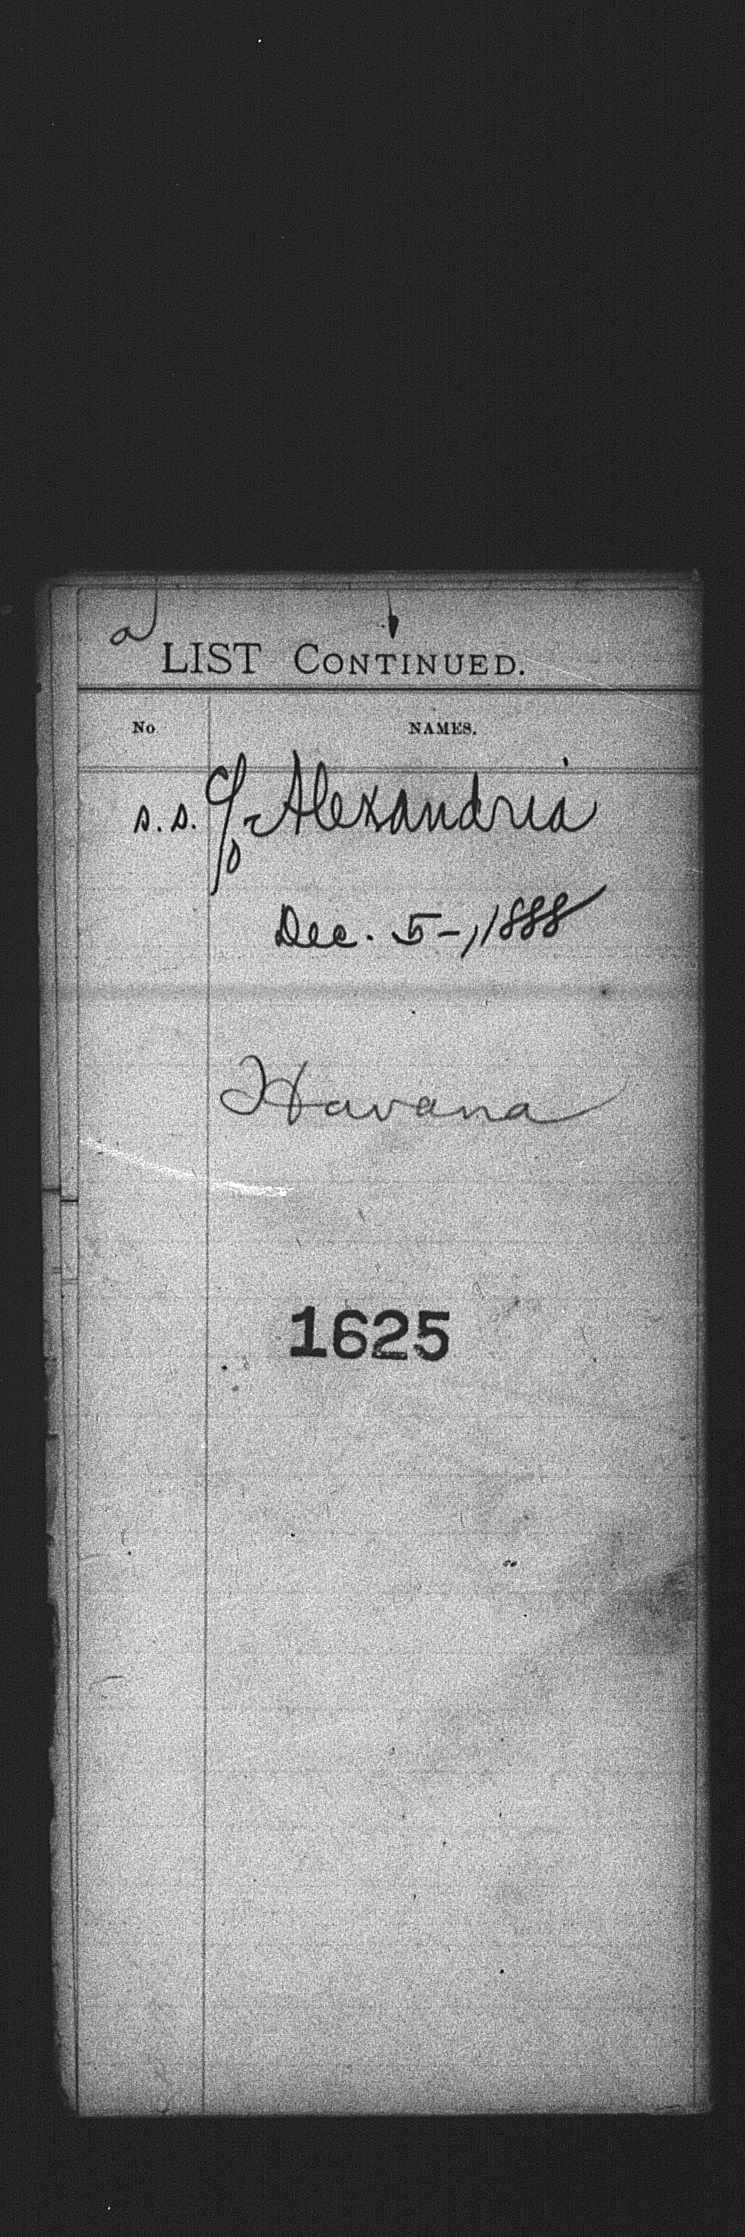 a
LIST CONTINUED.
No NAMES.
s.s. of Alexandria
Dec. 5-, 1888
Havana
1625